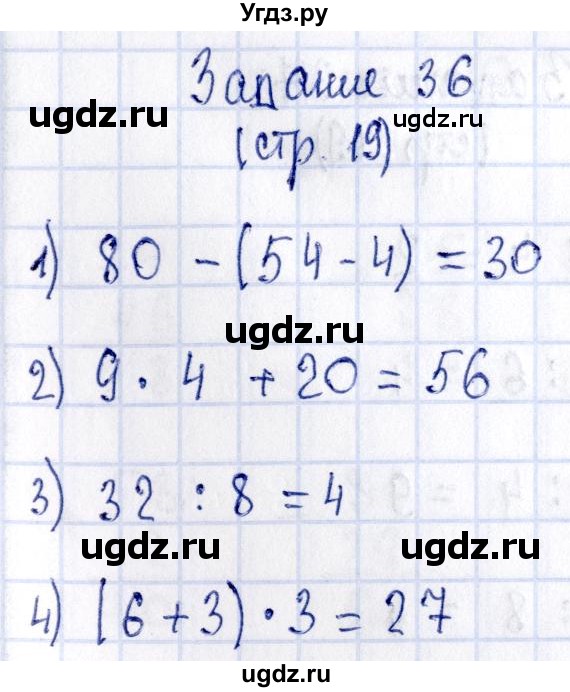 Угдз.ру
Задание 36
ugdz.ru
ugdz.ru
(стр. 19)
1) 80 - (54 - 4) = 30
ugdz.ru
2) 9 · 4 + 20 = 56
3) 32 : 8 = 4
ugdz.ru
ugdz.ru
4) (6 + 3) · 3 = 27
ugdz.ru